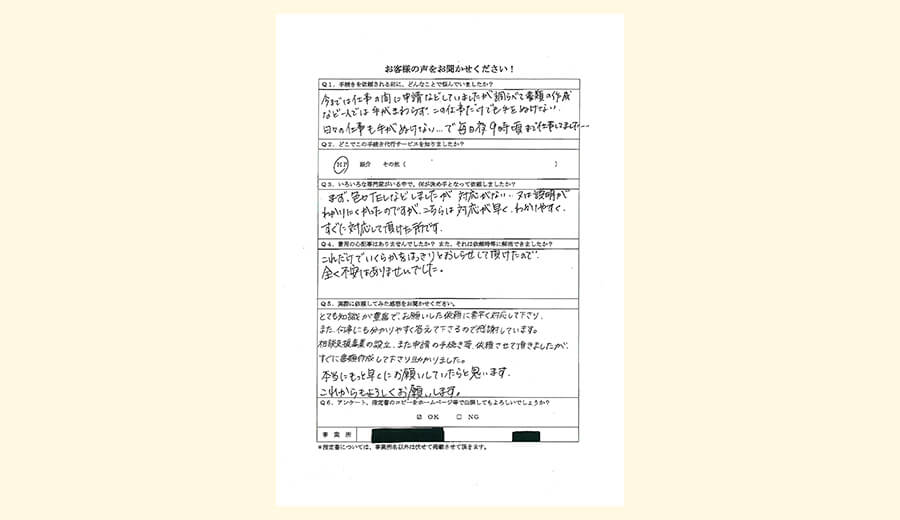 お客様の声をお聞かせください！
Q１．手続きを依頼される前に、どんなことで悩んでいましたか？
今までは仕事の間に申請などしていましたが調らべて書類の作成
など一人では手がまわらず、この仕事だけでも手をぬけない
日々の仕事も手がぬけない…で毎日夜9時頃まで仕事してました…
Q２．どこでこの手続き代行サービスを知りましたか？
HP 紹介 その他（ ）
Q３．いろいろな専門家がいる中で、何が決め手となって依頼しましたか？
まず、色々TELなどしましたが 対応がない、又は説明が
わかりにくかったのですが、こちらは対応が早く、わかりやすく、
すぐに対応して頂けた所です。
Q４．費用の心配事はありませんでしたか？ また、それは依頼時等に解消できましたか？
これだけでいくらかをはっきりとおしらせして頂けたので、
全く不安はありませんでした。
Q５．実際に依頼してみた感想をお聞かせください。
とても知識が豊富で、お願いした依頼に素早く対応して下さり、
また、何事にも分かりやすく答えて下さるので感謝しています。
相談支援事業の設立、また申請の手続き等、依頼させて頂きましたが、
すぐに書類作成して下さり助かりました。
本当にもっと早くにお願いしていたらと思います。
これからもよろしくお願いします。
Q６．アンケート、指定書のコピーをホームページ等で公開してもよろしいでしょうか？
☑ OK □ NG
事業所
＊指定書については、事業所名以外は伏せて掲載させて頂きます。